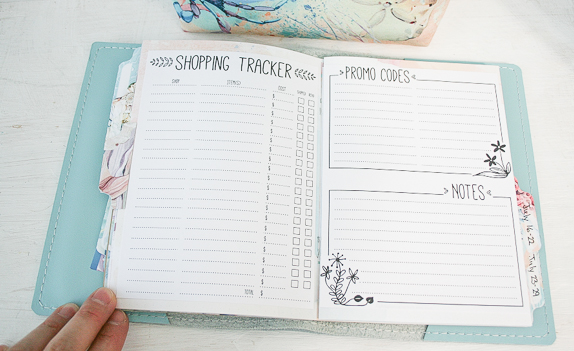 SHOPPING TRACKER
SHOP ITEM(S) COST
$
$
$
$
$
$
$
$
$
$
$
$
$
$
$
$
$
$
TOTAL $
PROMO CODES
NOTES
July 16-22
July 23-29